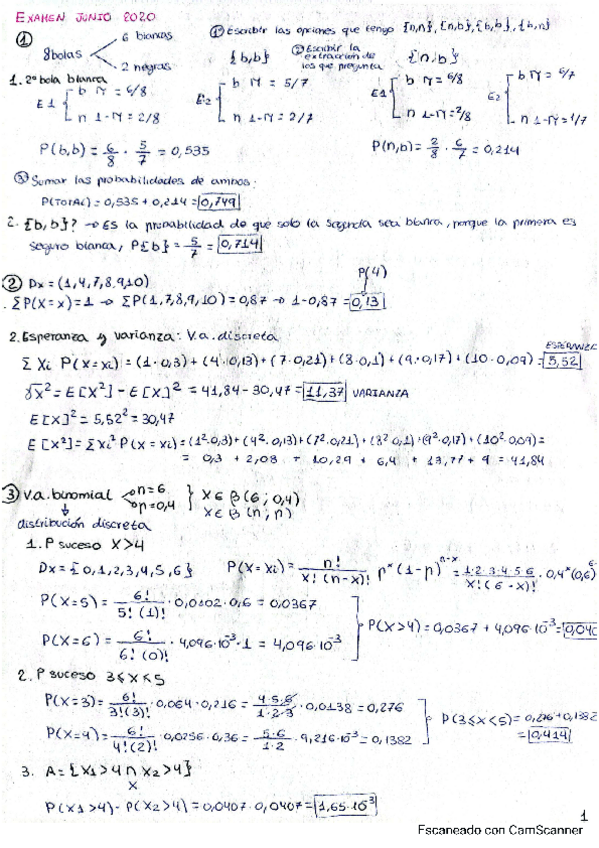 EXAMEN JUNIO 2020
① 8 bolas 6 blancas 2 negras
① Escribir las opciones que tengo {n,n}, {n,b}, {b,b}, {b,n}
② Escribir la extracción de los que pregunta
{b,b} {n,b}
1. 2ª bola blanca
E1 b π = 6/8 n 1-π = 2/8
E2 b π = 5/7 n 1-π = 2/7
E1 b π = 6/8 n 1-π = 2/8
E2 b π = 6/7 n 1-π = 1/7
P(b,b) = 6/8 · 5/7 = 0,535
P(n,b) = 2/8 · 6/7 = 0,214
③ Sumar las probabilidades de ambos:
P(TOTAL) = 0,535 + 0,214 = 0,749
2. {b,b}? → Es la probabilidad de que solo la segunda sea blanca, porque la primera es
seguro blanca, P{b} = 5/7 = 0,714
② Dx = (1,4,7,8,9,10)
P(4)
· ΣP(X=x) = 1 → ΣP(1,7,8,9,10) = 0,87 → 1-0,87 = 0,13
2. Esperanza y varianza: V.a. discreta
Σ Xi P(X=xi) = (1·0,3)+(4·0,13)+(7·0,21)+(8·0,1)+(9·0,17)+(10·0,09) = 5,52 ESPERANZA
σx² = E[X²] - E[X]² = 41,84 - 30,47 = 11,37 VARIANZA
E[X]² = 5,52² = 30,47
E[X²] = Σxi² P(X=xi) = (1²·0,3)+(4²·0,13)+(7²·0,21)+(8²·0,1)+(9²·0,17)+(10²·0,09) =
= 0,3 + 2,08 + 10,29 + 6,4 + 13,77 + 9 = 41,84
③ V.a. binomial n=6 p=0,4 } X ∈ β(6; 0,4)
X ∈ β(n; p)
distribución discreta
1. P suceso X>4
Dx = {0,1,2,3,4,5,6} P(X=xi) = n!/x!(n-x)! p^x (1-p)^n-x = 1·2·3·4·5·6/x!(6-x)! · 0,4^x (0,6)^6-
P(X=5) = 6!/5!(1)! · 0,0102 · 0,6 = 0,0367
P(X=6) = 6!/6!(0)! · 4,096·10^-3 · 1 = 4,096·10^-3
P(X>4) = 0,0367 + 4,096·10^-3 = 0,040
2. P suceso 3≤X<5
P(X=3) = 6!/3!(3)! · 0,064 · 0,216 = 4·5·6/1·2·3 · 0,0138 = 0,276
P(X=4) = 6!/4!(2)! · 0,0256 · 0,36 = 5·6/1·2 · 9,216·10^-3 = 0,1382
P(3≤X<5) = 0,276 + 0,1382
= 0,414
3. A = {X1>4 ∩ X2>4}
x
P(X1>4) · P(X2>4) = 0,0407 · 0,0407 = 1,65·10^-3
1
Escaneado con CamScanner